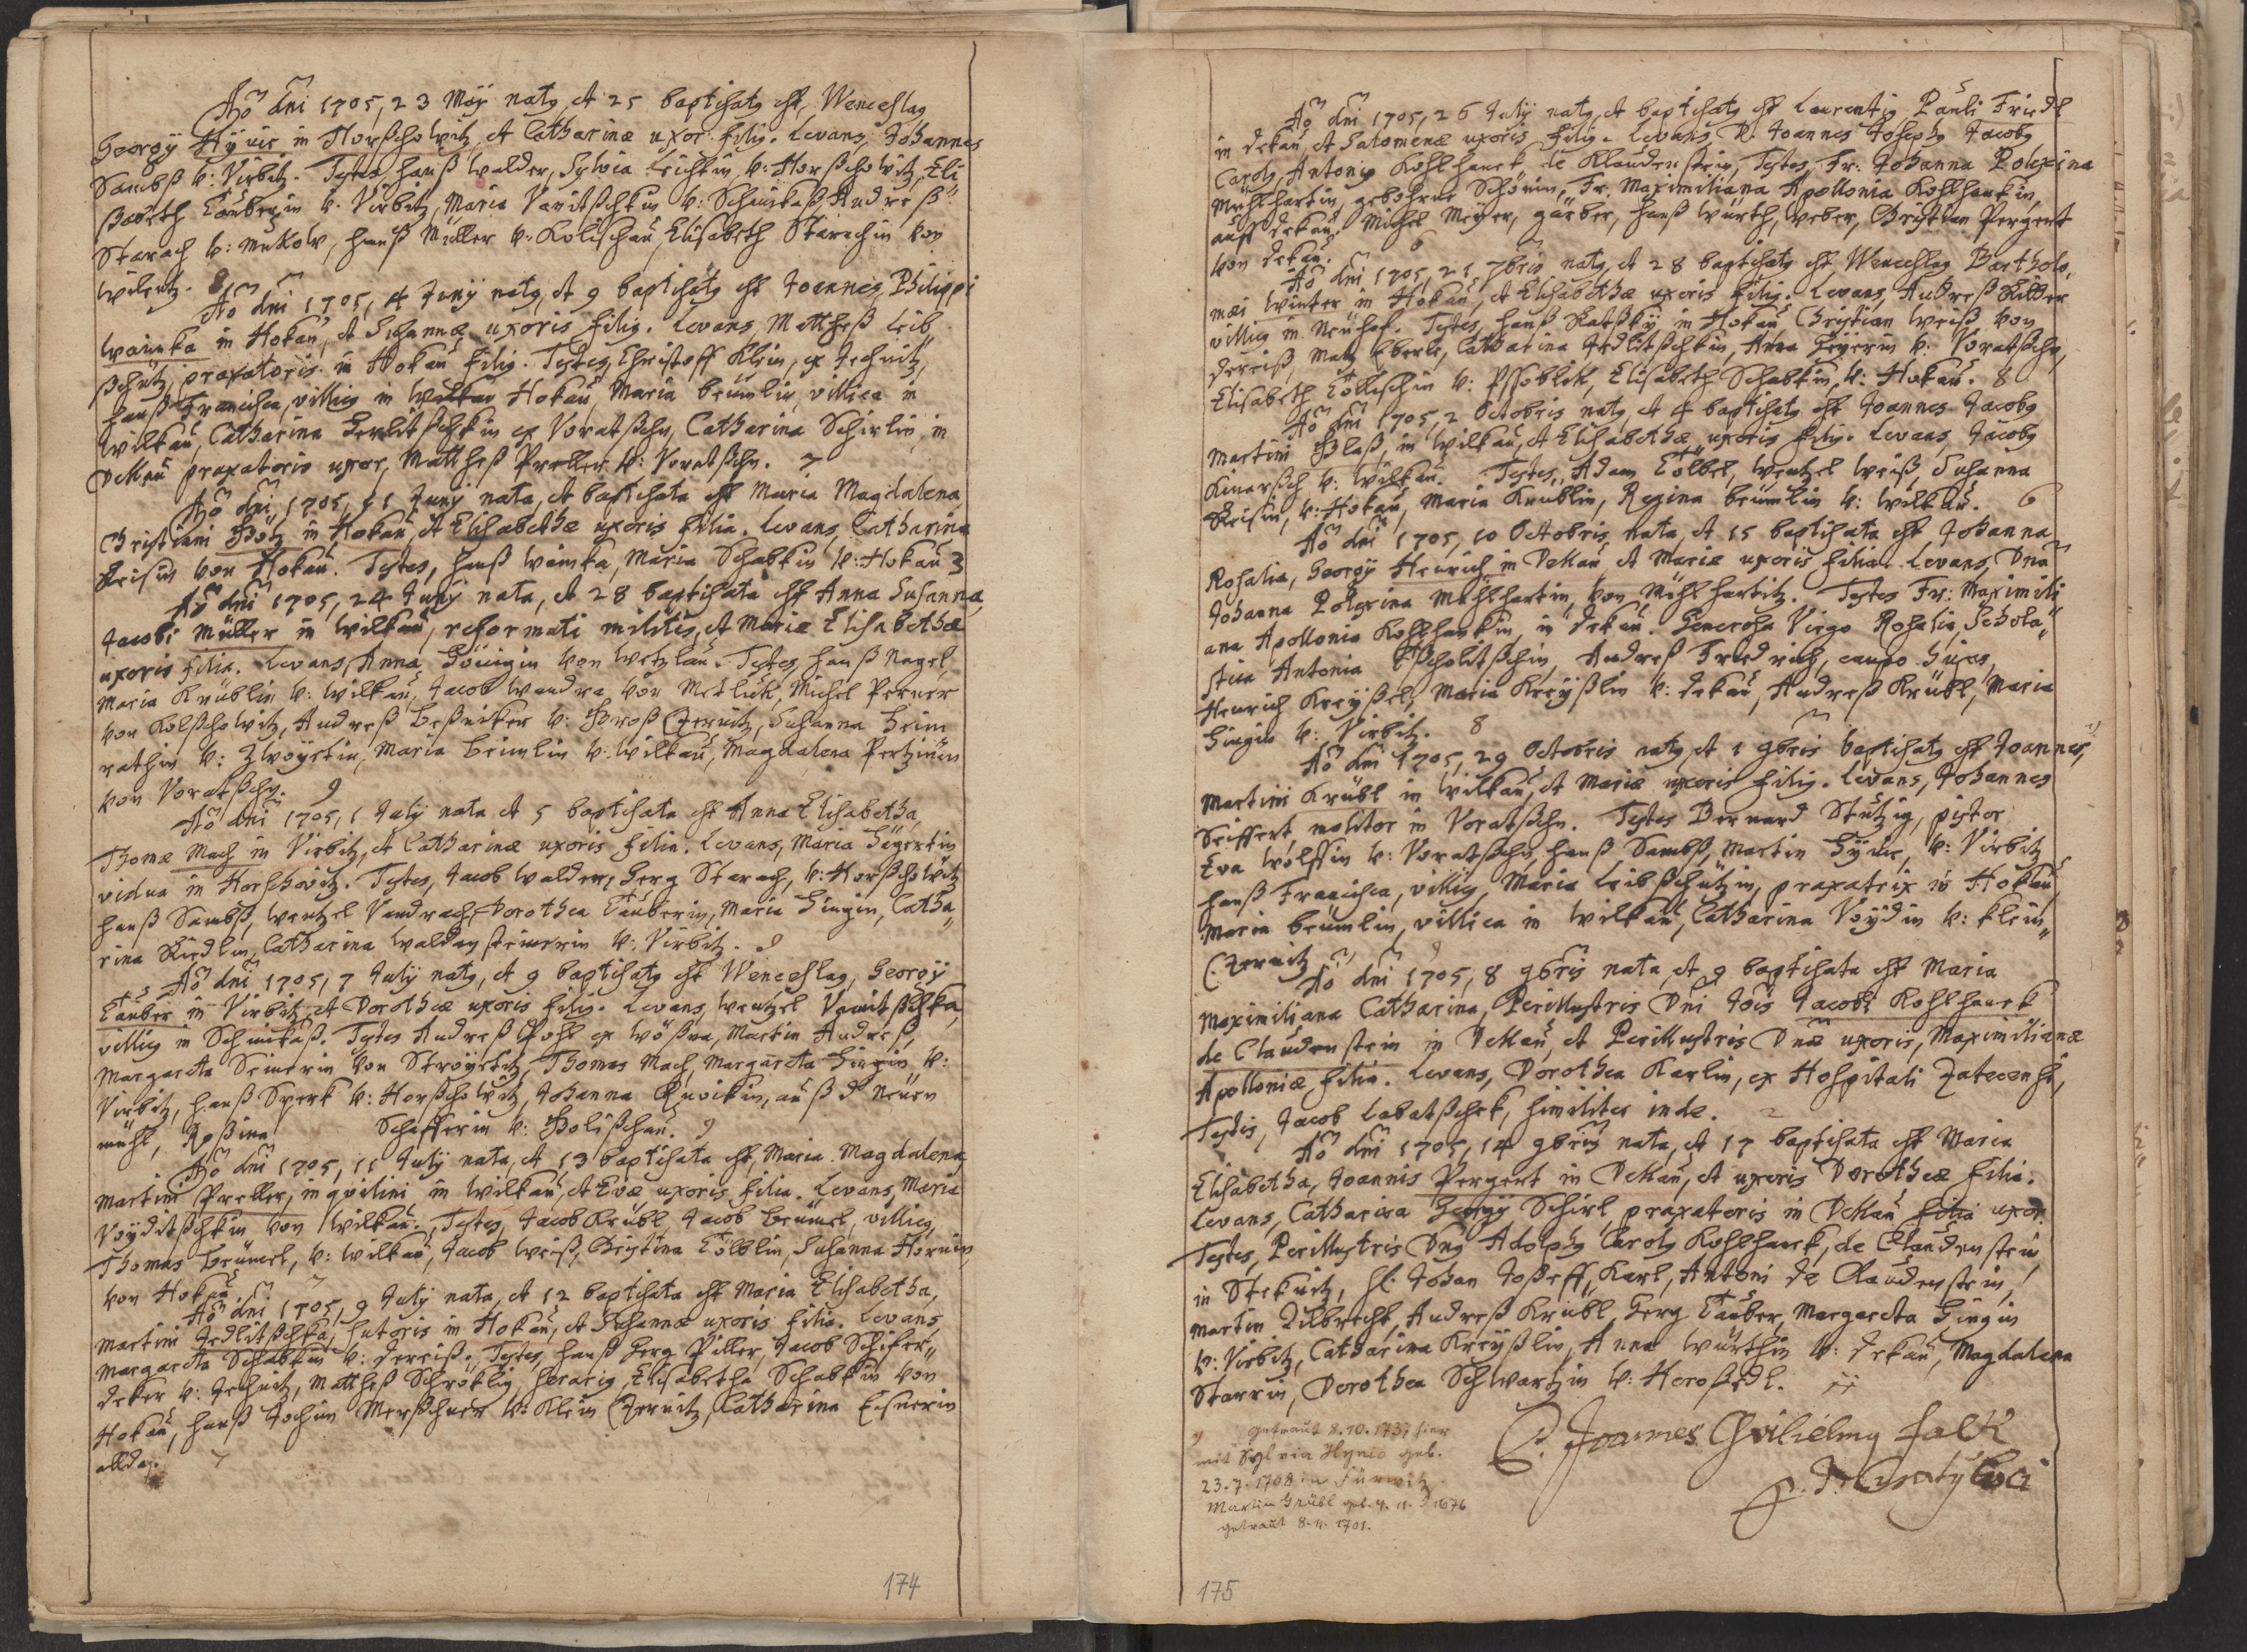 Aō dni 1705, 23 Maÿ natg, et 25 baptisatg est, Wenceslag
Georgÿ Hÿnie in Horßchowitz, et Catharinæ uxor: filig. Levans, Johannes
Sambß v: Virbitz. Testes, Hanß Walder, Sylvia Leichtin, v: Horßchowitz, Eli
ßabeth Tauberin v. Virbitz, Maria Vanitßchkin v: Schmikaß, Andreß
Starach v: Mukow, Hanß Müller v. Kolischau, Elisabeth Starichin von
Wilentz. 8
Aō dni 1705, 4 Junÿ natg, et 9 baptisatg est Joannes, Philippi
Wainka in Hokau, et Johannæ uxoris filig. Levans, Mattheß Leib
ßchütz, praxatoris in Hokau filig. Testes, Christoff Klein, ex Jechnitz,
Hanß Francisca, villicg in Hokau, Maria Breümlin, villica in
Wilkau, Catharina Herlitßchkin ex Voratßchn, Catharina Schirlin, in
DeKau praxatoris uxor, Mattheß Preller v: Voratßchn. 7
Aō dni, 1705, 11 Junÿ nata, et baptisata est Maria Magdalena,
Christiani Götz in Hokau, et Elisabethæ uxoris filia. Levans, Catharina
Reisin von Hokau. Testes, Hanß Wainka, Maria Schabkin v: Hokau 3
Aō dni 1705, 24 Junÿ nata, et 28 baptisata est Anna Susanna,
Jacobi Müller in Wilkau, reformati militis, et Mariæ Elisabethæ
uxoris filia. Levans, Anna Hönigin von Wetzlau. Testes, Hanß Nagel,
Maria Krüblin v: Wilkau, Jacob Wandra von Metluk, Michel Perner
von Kolßchowitz, Andreß Beßniker v: Groß Czernitz, Susanna Heim
rathin v: Zwoÿstin, Maria Breimlin v: Wilkau, Magdalena Pertzinin
von Voratßchn. 9
Aō dni 1705, 1 Julÿ nata et 5 baptisata est Anna Elisabetha,
Thomæ Mach in Virbitz, et Catharinæ uxoris filia. Levans, Maria Sigertin
vidua in Horßchowitz. Testes, Jacob Walder, Gerg Starach, v: Horßchowitz
Hanß Sambß, Wentzel Vandrach, Dorothea Tauberin, Maria Hingin, Catha„
rina Riedlin, Catharina Waldensteinerin v: Virbitz. 9
Aō dni 1705, 7 Julÿ natg, et 9 baptisatg est Wenceslag, Georgÿ
Tauber in Virbitz, et Dorotheæ uxoris filig. Levans, Wentzel Vanitßchka,
villicg in Schmikaß. Testes Andreß Pohl ex Wößna, Martin Andreß,
Margareta Seinerin von Stroÿetitz, Thomas Mach, Margareta Hingin v:
Virbitz, Hanß Sperk v: Horßchowitz, Johanna Quoikin, auß d Neüen
mühl, Roßina Schafferin v: Golißchau. 9
Aō dni 1705, 11 Julÿ nata, et 13 baptisata est, Maria Magdalena,
Martini Preller, inqvilini in Wilkau, et Evæ uxoris filia. Levans, Maria
Voÿditßchkin von Wilkau. Testes, Jacob Krübl, Jacob Breümel, villicg,
Thomas Breümel, v: Wilkau, Jacob Weiß, Christina Tölblin, Susanna Hornin,
von Hokau 7
Aō dni 1705, 9 Julÿ nata, et 12 baptisata est Maria Elisabetha,
Martini Jedlitßchka, sutoris in Hokau, et Johannæ uxoris filia. Levans,
Margareta Schabkin v: Dereiß. Testes, Hanß Gerg Piller, Jacob Schifer„
deker v: Jechnitz, Mattheß Schröklig, Elisabetha Schabkin von
Hokau, Hanß Jochim Merßchner v: Klein Czernitz, Catharina Eisnerin
allda. 7
174
Aō dni 1705, 26 Julÿ natg, et baptisatg est Laurentig Pauli Friedl
in Dekau, et Salomenæ uxoris filig. Levans, D. Joannes Josephg Jacobg
Carolg, Antonig Kohlhauek de Klaudenstein, Testes, Fr: Johanna Polexina
Mühlhartin, gebohrne Schönin, Fr. Maximiliana Apollonia Kohlhaukin,
auff Dekau. Michel Meÿer, gärber, Hanß Würth, Weber, Christian Pergert
von Dekau. 6
Aō dni 1705, 21, 7bris natg, et 28 baptisatg est, Wenceslag, Bartholo„
mæi Winter in Hokau, et Elisabethæ uxoris filig. Levans, Andreß Ritter
villicg in Neühof. Testes, Hanß Ratßkÿ, in Hokau, Christian Weiß von
Dereiß, Matz Eberle, Catharina Jedlitßchkin, Anna Geÿerin v: Voratßchn,
Elisabeth Töllischin v: Pssoblik, Elisabeth Schabkin, v: Hokau. 8
Aō dni 1705, 2 Octobris natg, et 4 baptisatg est Joannes Jacobg
Martini Glaß, in Wilkau, et Elisabethæ uxoris filig. Levans, Jacobg
Kinerßch v: Wilkau. Testes, Adam Tölbel, Wentzel Weiß, Susanna
Reisin, v: Hokau, Maria Knublin, Regina Breümlin v: Wilkau. 6
Aō dni 1705, 10 Octobris nata, et 15 baptisata est Johanna
Rosalia, Georgÿ Heinrich in DeKau et Mariæ uxoris filia. Levans, Dna
Johanna Polexina Mühlhartin, von Mühlhartitz. Testes Fr: Maximili
ana Apollonia Kohlhaukin, in Dekau. Generosa Virgo Rosalia, Schola„
stica Antonia Tßcholitßchin, Andreß Friedrich, caupo hujas,
Heinrich Kreÿßel, Maria Kreÿßlin v: Dekau, Andreß Krübl, Maria
Hingin v: Virbitz. 8
Aō dni 1705, 29 Octobris natg, et 1 9bris baptisatg est Joannes,
Martini Krübl in Wilkau, et Mariæ uxoris filig. Levans, Johannes
Seiffert, molitor in Voratßchn. Testes Bernard Stützig, pistor
Eva Wolffin v: Voratßchn, Hanß Sambß, Martin Hÿnie, v: Virbitz
Hanß Francisca, villicg, Maria Leibßchützin, praxatrix in Hokau,
Maria Breümlin, villica in Wilkau, Catharina Voÿdin v: Klein„
Czernitz 9
Aō dni 1705, 8 9bris nata, et 9 baptisata est Maria
Maximiliana Catharina, Perillustris Dni Jois Jacobi Kohlhauek
de Claudenstein in DeKau, et Perillustris Dnæ uxoris, Maximilianæ
Apolloniæ filia. Levans, Dorothea Karlin, ex Hospitali Zatecensi,
Testis, Jacob Labatßchek, similiter inde. 2
Aō dni 1705, 14 9bris nata, et 17 baptisata est Maria
Elisabetha, Joannis Pergert in DeKau, et uxoris Dorotheæ filia.
Levans, Catharina Georgÿ Schirl, praxatoris in DeKau filia uxor.
Testes, Perillustris Dng Adolphg Carolg Kohlhauek, de Claudenstein
in Steknitz, H: Johan Joßeff, Karl, Antoni de Claudenstein,
Martin Zilbrecht, Andreß Krubl, Gerg Tauber, Margareta Hingin
v: Virbitz, Catharina Kreÿßlin, Anna Würthin v: Dekau, Magdalena
Starrin, Dorothea Schwartzin v: Heroßedl. 11
getraut 8.10.1737 hier
mit Sylvia Hynie geb.
23.7.1708 in Fürwitz
Martin Grübl geb. 4.11.1676
getraut 8.11.1701.
P. Joannes Guilielmg Falk
175